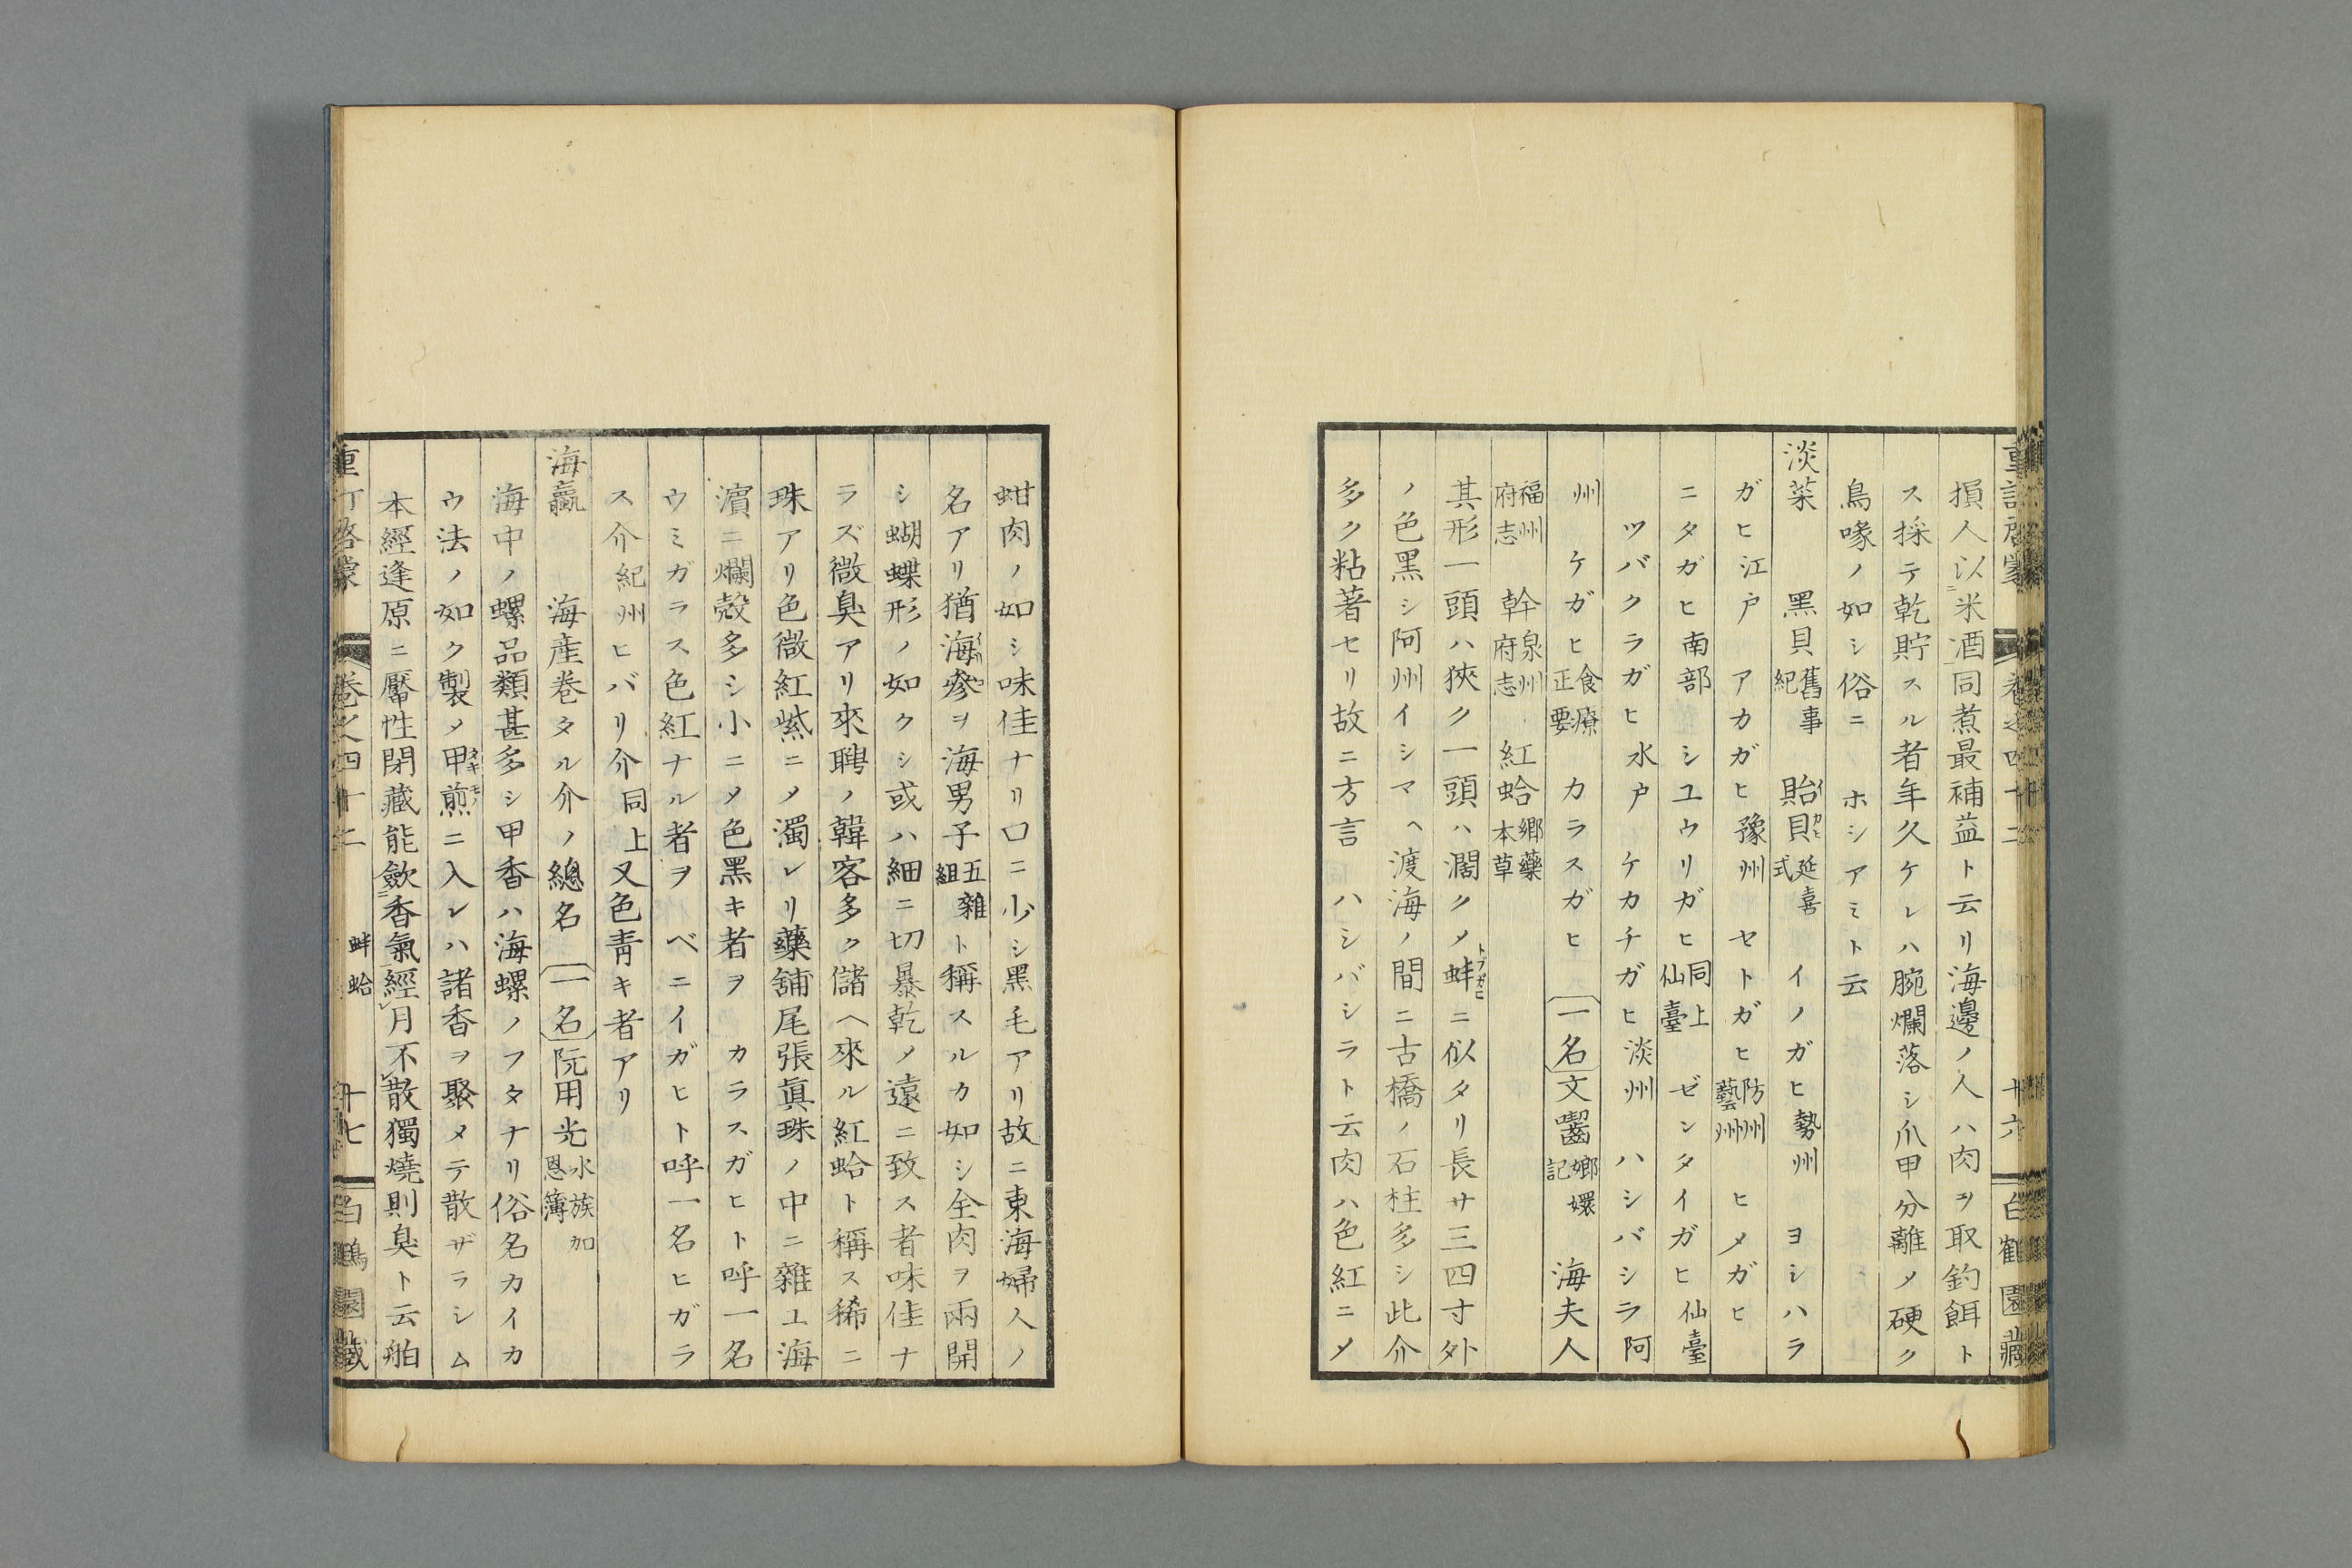 損人以米酒同煮最補益ト云リ海邊ノ人ハ肉ヲ取釣餌ト
ス採テ乾貯スル者年久ケレハ腕爛落シ爪甲分離メ硬ク
鳥喙ノ如シ俗ニホシアミト云
淡菜 黑貝舊事紀 貽貝イカヒ延喜式 イノガヒ勢州 ヨシハラ
ガヒ江戸 アカガヒ豫州 セトガヒ防州藝州 ヒメガヒ
ニタガヒ南部 シユウリガヒ同上仙臺 ゼンタイガヒ仙臺
ツバクラガヒ水戸 ケカチガヒ淡州 ハシバシラ阿
州 ケガヒ食療正要 カラスガヒ 一名文䶩嫏嬛記 海夫人
福州府志 幹泉州府志 紅蛤鄕藥本草
其形一頭ハ狹ク一頭ハ濶クメ蚌ドブガヒニ似タリ長サ三四寸外
ノ色黑シ阿州イシマヘ渡海ノ間ニ古橋ノ石柱多シ此介
多ク粘著セリ故ニ方言ハシバシラト云肉ハ色紅ニメ
重訂啓蒙 卷之四十二 十六 白鶴園藏
蚶肉ノ如シ味佳ナリ口ニ少シ黑毛アリ故ニ東海婦人ノ
名アリ猶海參ヲ海男子五雜組ト稱スルカ如シ全肉ヲ兩開
シ蝴蝶形ノ如クシ或ハ細ニ切暴乾メ遠ニ致ス者味佳ナ
ラズ微臭アリ來聘ノ韓客多ク儲ヘ來ル紅蛤ト稱ス稀ニ
珠アリ色微紅紫ニメ濁レリ藥舖尾張眞珠ノ中ニ雜ユ海
濵ニ爛殼多シ小ニメ色黑キ者ヲカラスガヒト呼一名
ウミガラス色紅ナル者ヲベニイガヒト呼一名ヒガラ
ス介紀州ヒバリ介同上又色靑キ者アリ
海蠃 海産卷タル介ノ總名 一名阮用光水族加恩簿
海中ノ螺品類甚多シ甲香ハ海螺ノフタナリ俗名カイカ
ウ法ノ如ク製メ甲煎タキモノニ入レハ諸香ヲ聚メテ散ザラシム
本經逢原ニ厴性閉藏能歛香氣經月不散獨燒則臭ト云舶
重訂啓蒙 卷之四十二 蚌蛤 十七 白鶴園藏